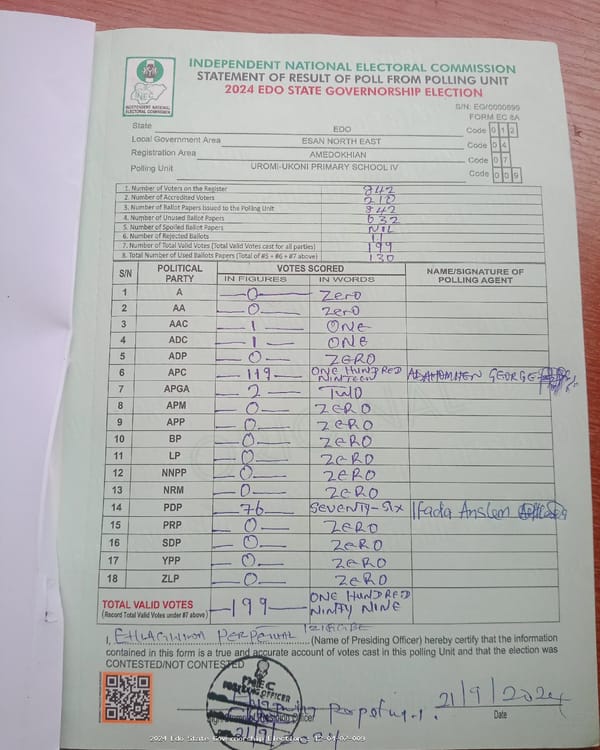 INDEPENDENT NATIONAL ELECTORAL COMMISSION
STATEMENT OF RESULT OF POLL FROM POLLING UNIT
2024 EDO STATE GOVERNORSHIP ELECTION
INDEPENDENT NATIONAL ELECTORAL COMMISSION
S/N: EG/0000895
FORM EC 8A
State EDO Code 0 1 2
Local Government Area ESAN NORTH EAST Code 0 4
Registration Area AMEDOKHIAN Code 0 7
Polling Unit UROMI-UKONI PRIMARY SCHOOL IV Code 0 0 9
1. Number of Voters on the Register 842
2. Number of Accredited Voters 210
3. Number of Ballot Papers Issued to the Polling Unit 842
4. Number of Unused Ballot Papers 632
5. Number of Spoiled Ballot Papers NIL
6. Number of Rejected Ballots 11
7. Number of Total Valid Votes (Total Valid Votes cast for all parties) 199
8. Total Number of Used Ballots Papers (Total of #5 + #6 + #7 above) 130
S/N POLITICAL PARTY VOTES SCORED NAME/SIGNATURE OF POLLING AGENT
IN FIGURES IN WORDS
1 A 0 Zero
2 AA 0 Zero
3 AAC 1 ONE
4 ADC 1 ONE
5 ADP 0 ZERO
6 APC 119 ONE HUNDRED NINTEEN GEORGE
7 APGA 2 TWO
8 APM 0 ZERO
9 APP 0 ZERO
10 BP 0 ZERO
11 LP 0 ZERO
12 NNPP 0 ZERO
13 NRM 0 ZERO
14 PDP 76 SEVENTY-SIX Ifada Anslem
15 PRP 0 ZERO
16 SDP 0 ZERO
17 YPP 0 ZERO
18 ZLP 0 ZERO
TOTAL VALID VOTES 199 ONE HUNDRED NINTY NINE
(Record Total Valid Votes under #7 above)
I, PERPETUAL (Name of Presiding Officer) hereby certify that the information
contained in this form is a true and accurate account of votes cast in this polling Unit and that the election was
CONTESTED/NOT CONTESTED
INEC
PRESIDING OFFICER
21/9/2024
Date
2024 Edo State Governorship Election - 12-04-07-009